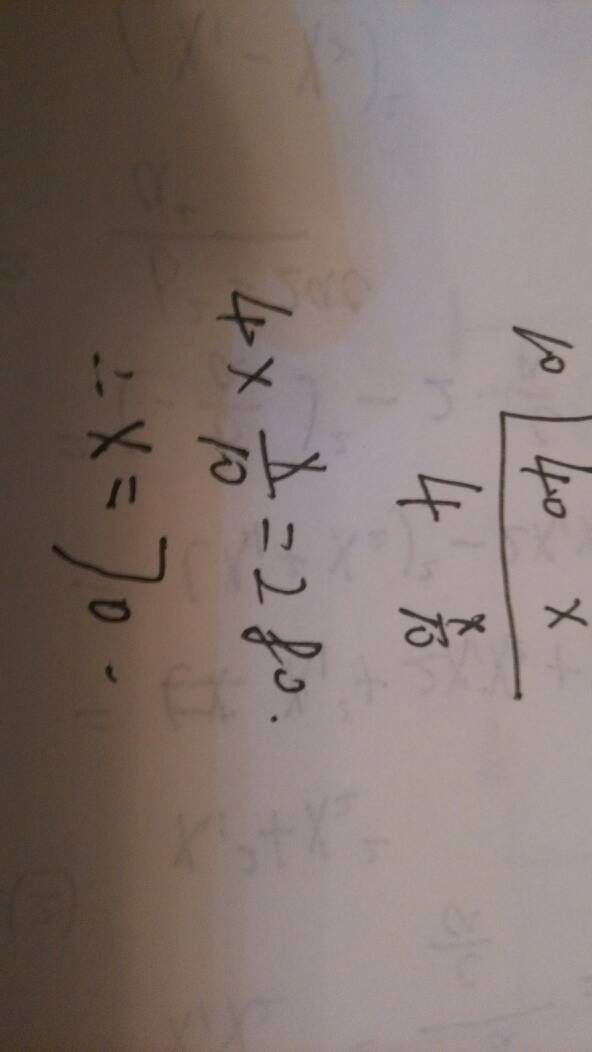 10 40 x
4 x/10
4 × x/10 = 280.
∴ x = 70.